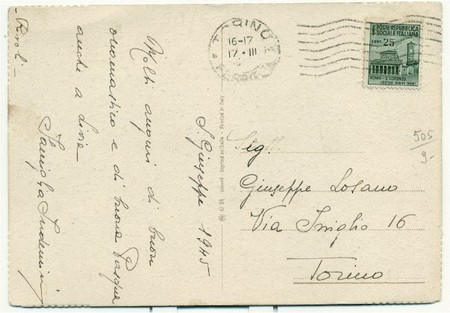 TORINO
16-17
17·III
POSTE REPUBBLICA
SOCIALE ITALIANA
CENT. 25
Rivoli -
S. Giuseppe 1945
Molti auguri di buon
onomastico e di buona Pasqua
anche a Livia
Famiglia
Sig.
Giuseppe Losano
Via 16
Torino
505
9-